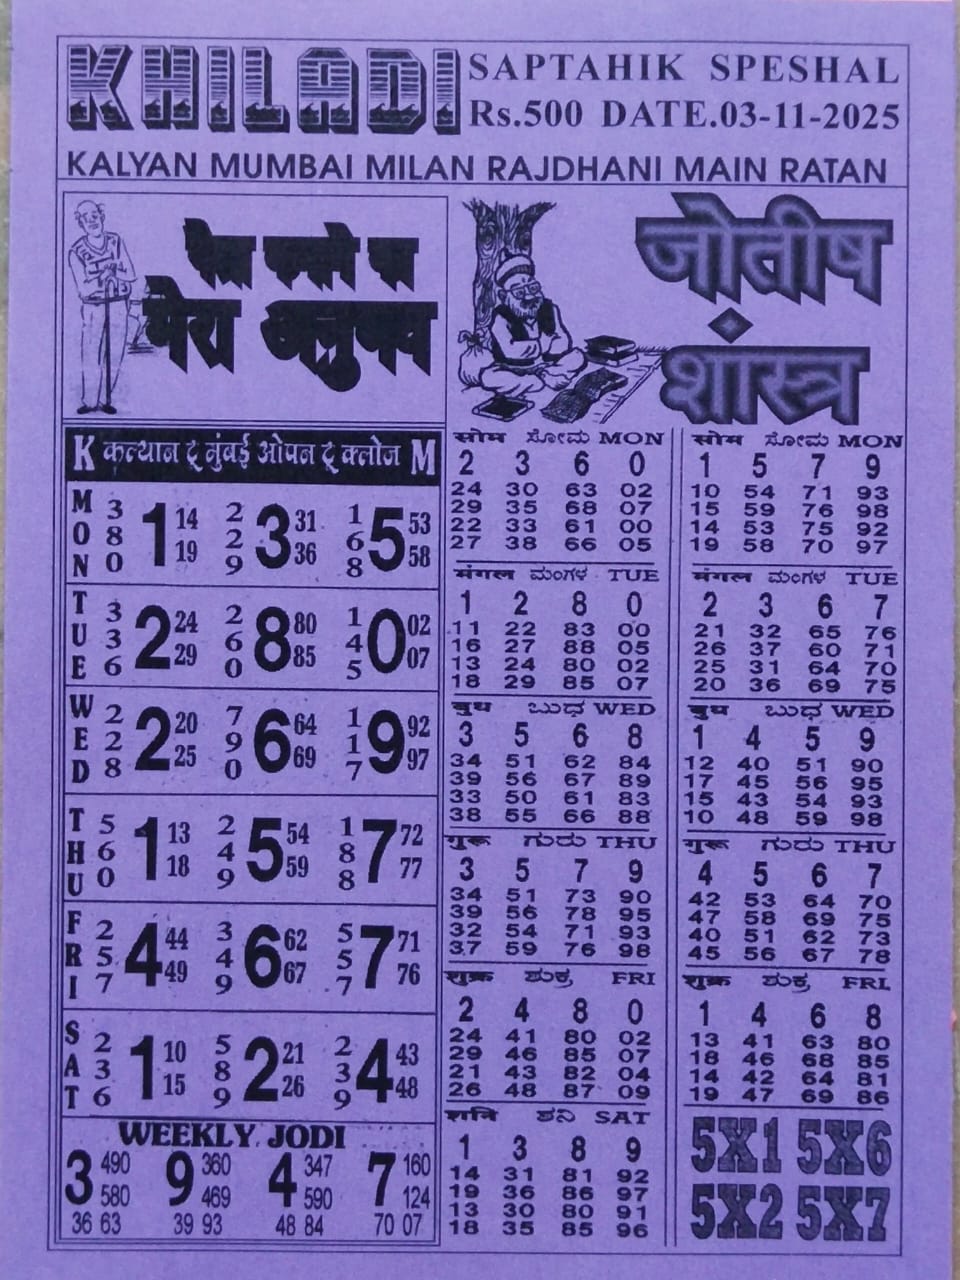 KHILADI
SAPTAHIK SPESHAL
Rs.500 DATE.03-11-2025
KALYAN MUMBAI MILAN RAJDHANI MAIN RATAN
पैसा कमाने का
मेरा अनुभव
जोतीष
शांस्त्र
K कल्यान टू मुंबई ओपन टू क्लोज M
MON 380 1 14 19 229 3 31 36 168 5 53 58
TUE 336 2 24 29 260 8 80 85 145 0 02 07
WED 228 2 20 25 790 6 64 69 117 9 92 97
THU 560 1 13 18 249 5 54 59 188 7 72 77
FRI 257 4 44 49 349 6 62 67 557 7 71 76
SAT 236 1 10 15 589 2 21 26 239 4 43 48
WEEKLY JODI
3 490 9 360 4 347 7 160
580 469 590 124
36 63 39 93 48 84 70 07
सोम ಸೋಮ MON
2 3 6 0
24 30 63 02
29 35 68 07
22 33 61 00
27 38 66 05
मंगल ಮಂಗಳ TUE
1 2 8 0
11 22 83 00
16 27 88 05
13 24 80 02
18 29 85 07
बुध ಬುಧ WED
3 5 6 8
34 51 62 84
39 56 67 89
33 50 61 83
38 55 66 88
गुरू ಗುರು THU
3 5 7 9
34 51 73 90
39 56 78 95
32 54 71 93
37 59 76 98
शुक्र ಶುಕ್ರ FRI
2 4 8 0
24 41 80 02
29 46 85 07
21 43 82 04
26 48 87 09
शनि ಶನಿ SAT
1 3 8 9
14 31 81 92
19 36 86 97
13 30 80 91
18 35 85 96
सोम ಸೋಮ MON
1 5 7 9
10 54 71 93
15 59 76 98
14 53 75 92
19 58 70 97
मंगल ಮಂಗಳ TUE
2 3 6 7
21 32 65 76
26 37 60 71
25 31 64 70
20 36 69 75
बुध ಬುಧ WED
1 4 5 9
12 40 51 90
17 45 56 95
15 43 54 93
10 48 59 98
गुरू ಗುರು THU
4 5 6 7
42 53 64 70
47 58 69 75
40 51 62 73
45 56 67 78
शुक्र ಶುಕ್ರ FRI
1 4 6 8
13 41 63 80
18 46 68 85
14 42 64 81
19 47 69 86
5X1 5X6
5X2 5X7